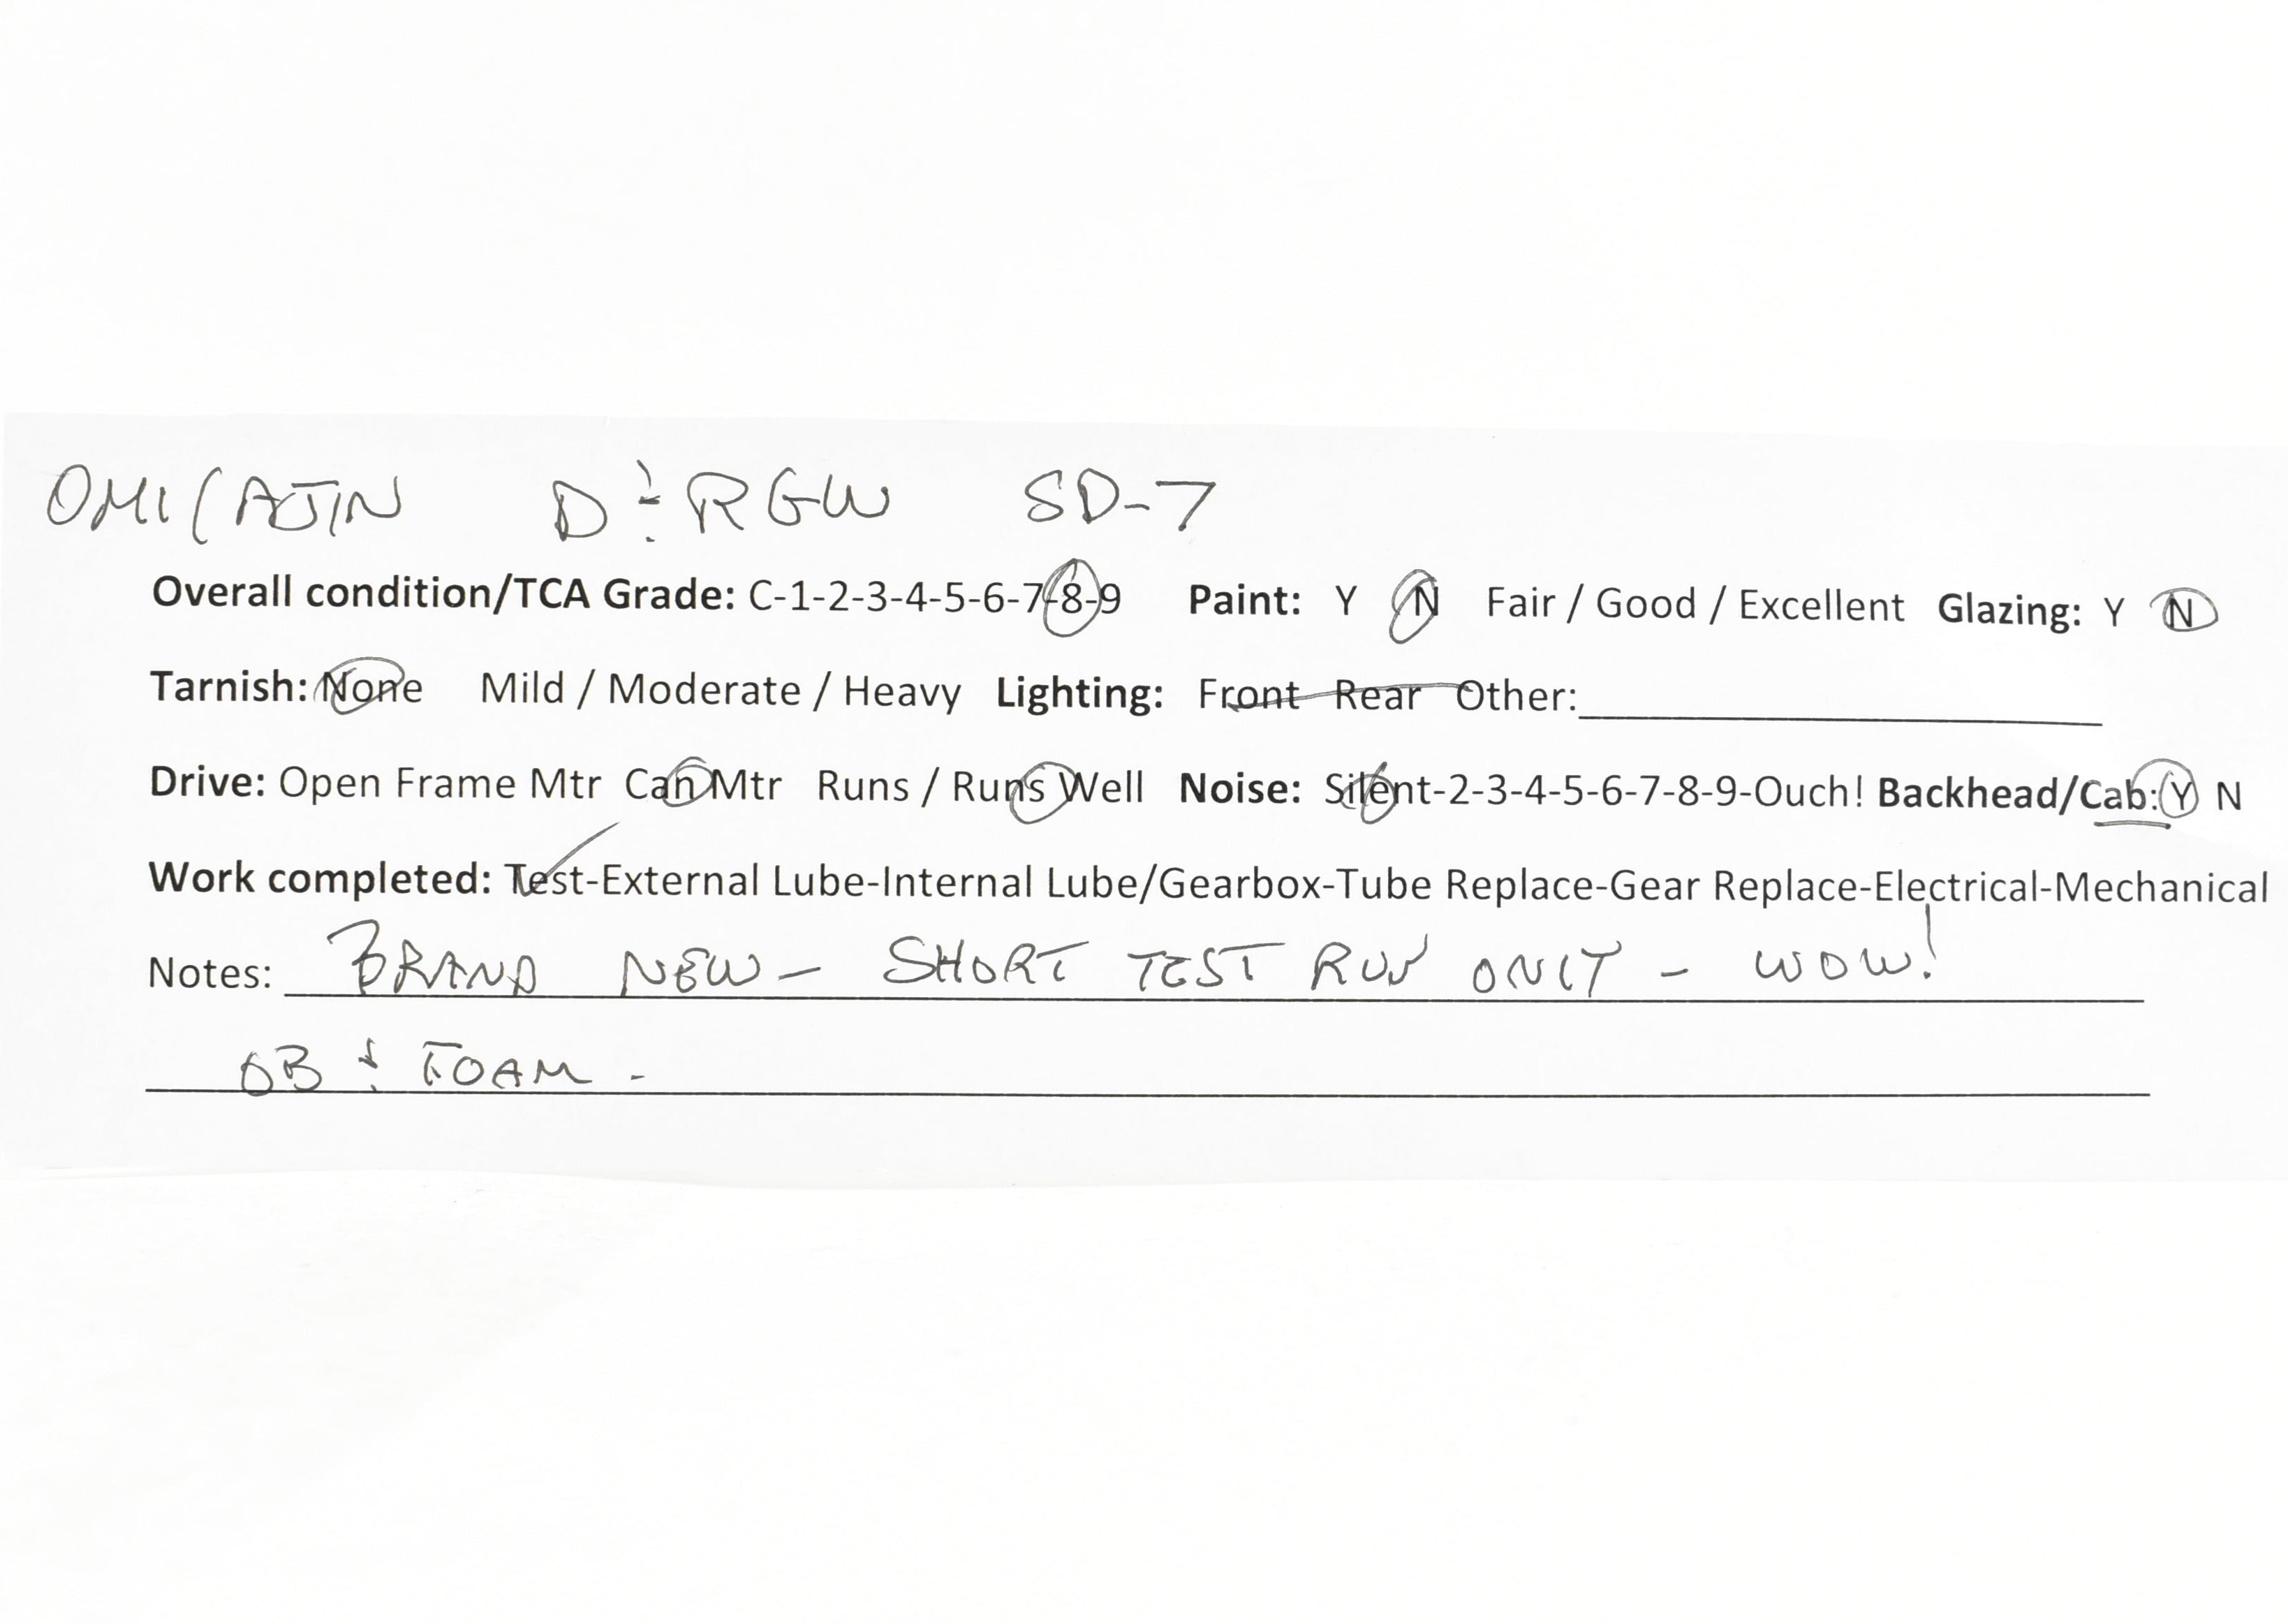 OMI/AJIN D&RGW SD-7
Overall condition/TCA Grade: C-1-2-3-4-5-6-7-8-9 Paint: Y N Fair / Good / Excellent Glazing: Y N
Tarnish: None Mild / Moderate / Heavy Lighting: Front Rear Other:
Drive: Open Frame Mtr Can Mtr Runs / Runs Well Noise: Silent-2-3-4-5-6-7-8-9-Ouch! Backhead/Cab: Y N
Work completed: Test-External Lube-Internal Lube/Gearbox-Tube Replace-Gear Replace-Electrical-Mechanical
Notes: BRAND NEW - SHORT TEST RUN ONLY - WOW!
OB & FOAM -